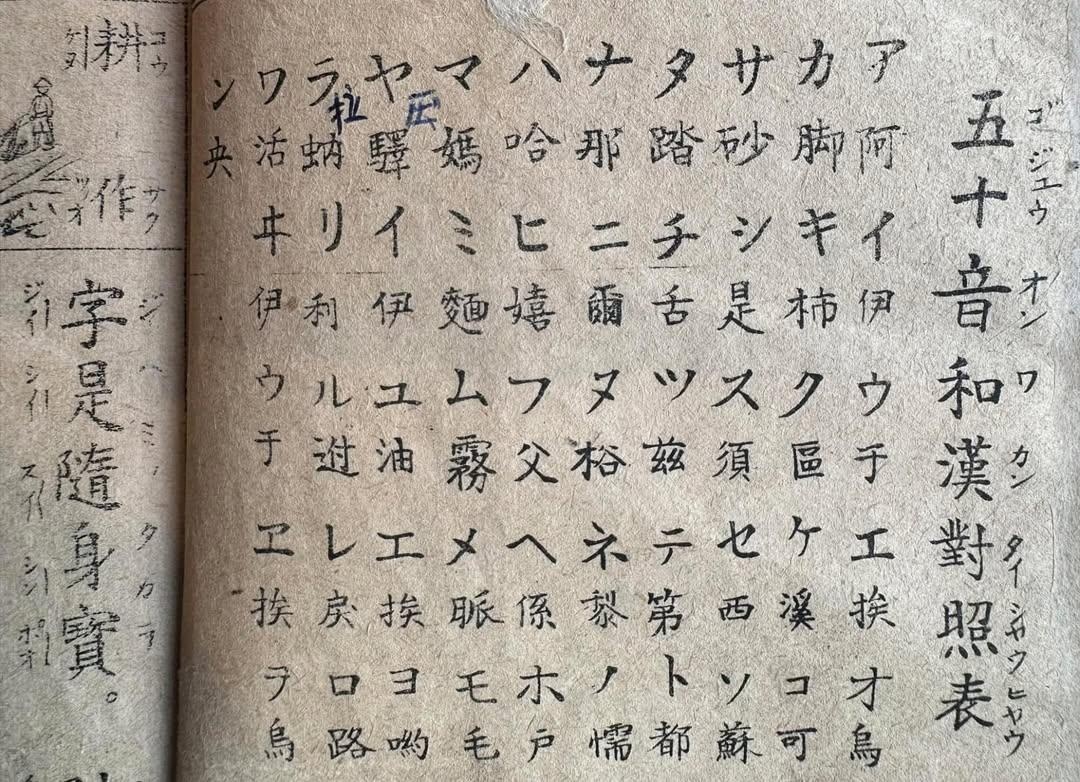 ゴジエウオンワカンタイシヤウヒヤウ
五十音和漢對照表
ア阿イ伊ウ于エ挨オ烏
カ脚キ柿ク區ケ溪コ可
サ砂シ是ス須セ西ソ蘇
タ踏チ舌ツ茲テ第ト都
ナ那ニ爾ヌネ黎ノ懦
ハ哈ヒ嬉フ父ヘ係ホ戶
マ媽ミ麵ム霧メ脈モ毛
压
ヤ驛イ伊ユ油エ挨ヨ喲
拉
ラ蚋リ利ルレ戾ロ路
ワ活ヰ伊ウ于ヱ挨ヲ烏
ン央
コウ
耕
サク
作
ツオ
ジハミノタカラ
字是隨身寶。